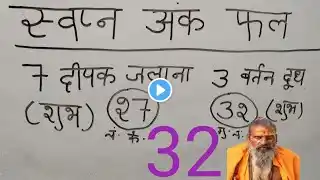 स्वप्न अंक फल
7 दीपक जलाना 3 बर्तन दूध
(शुभ) 27 32 (शुभ)
32